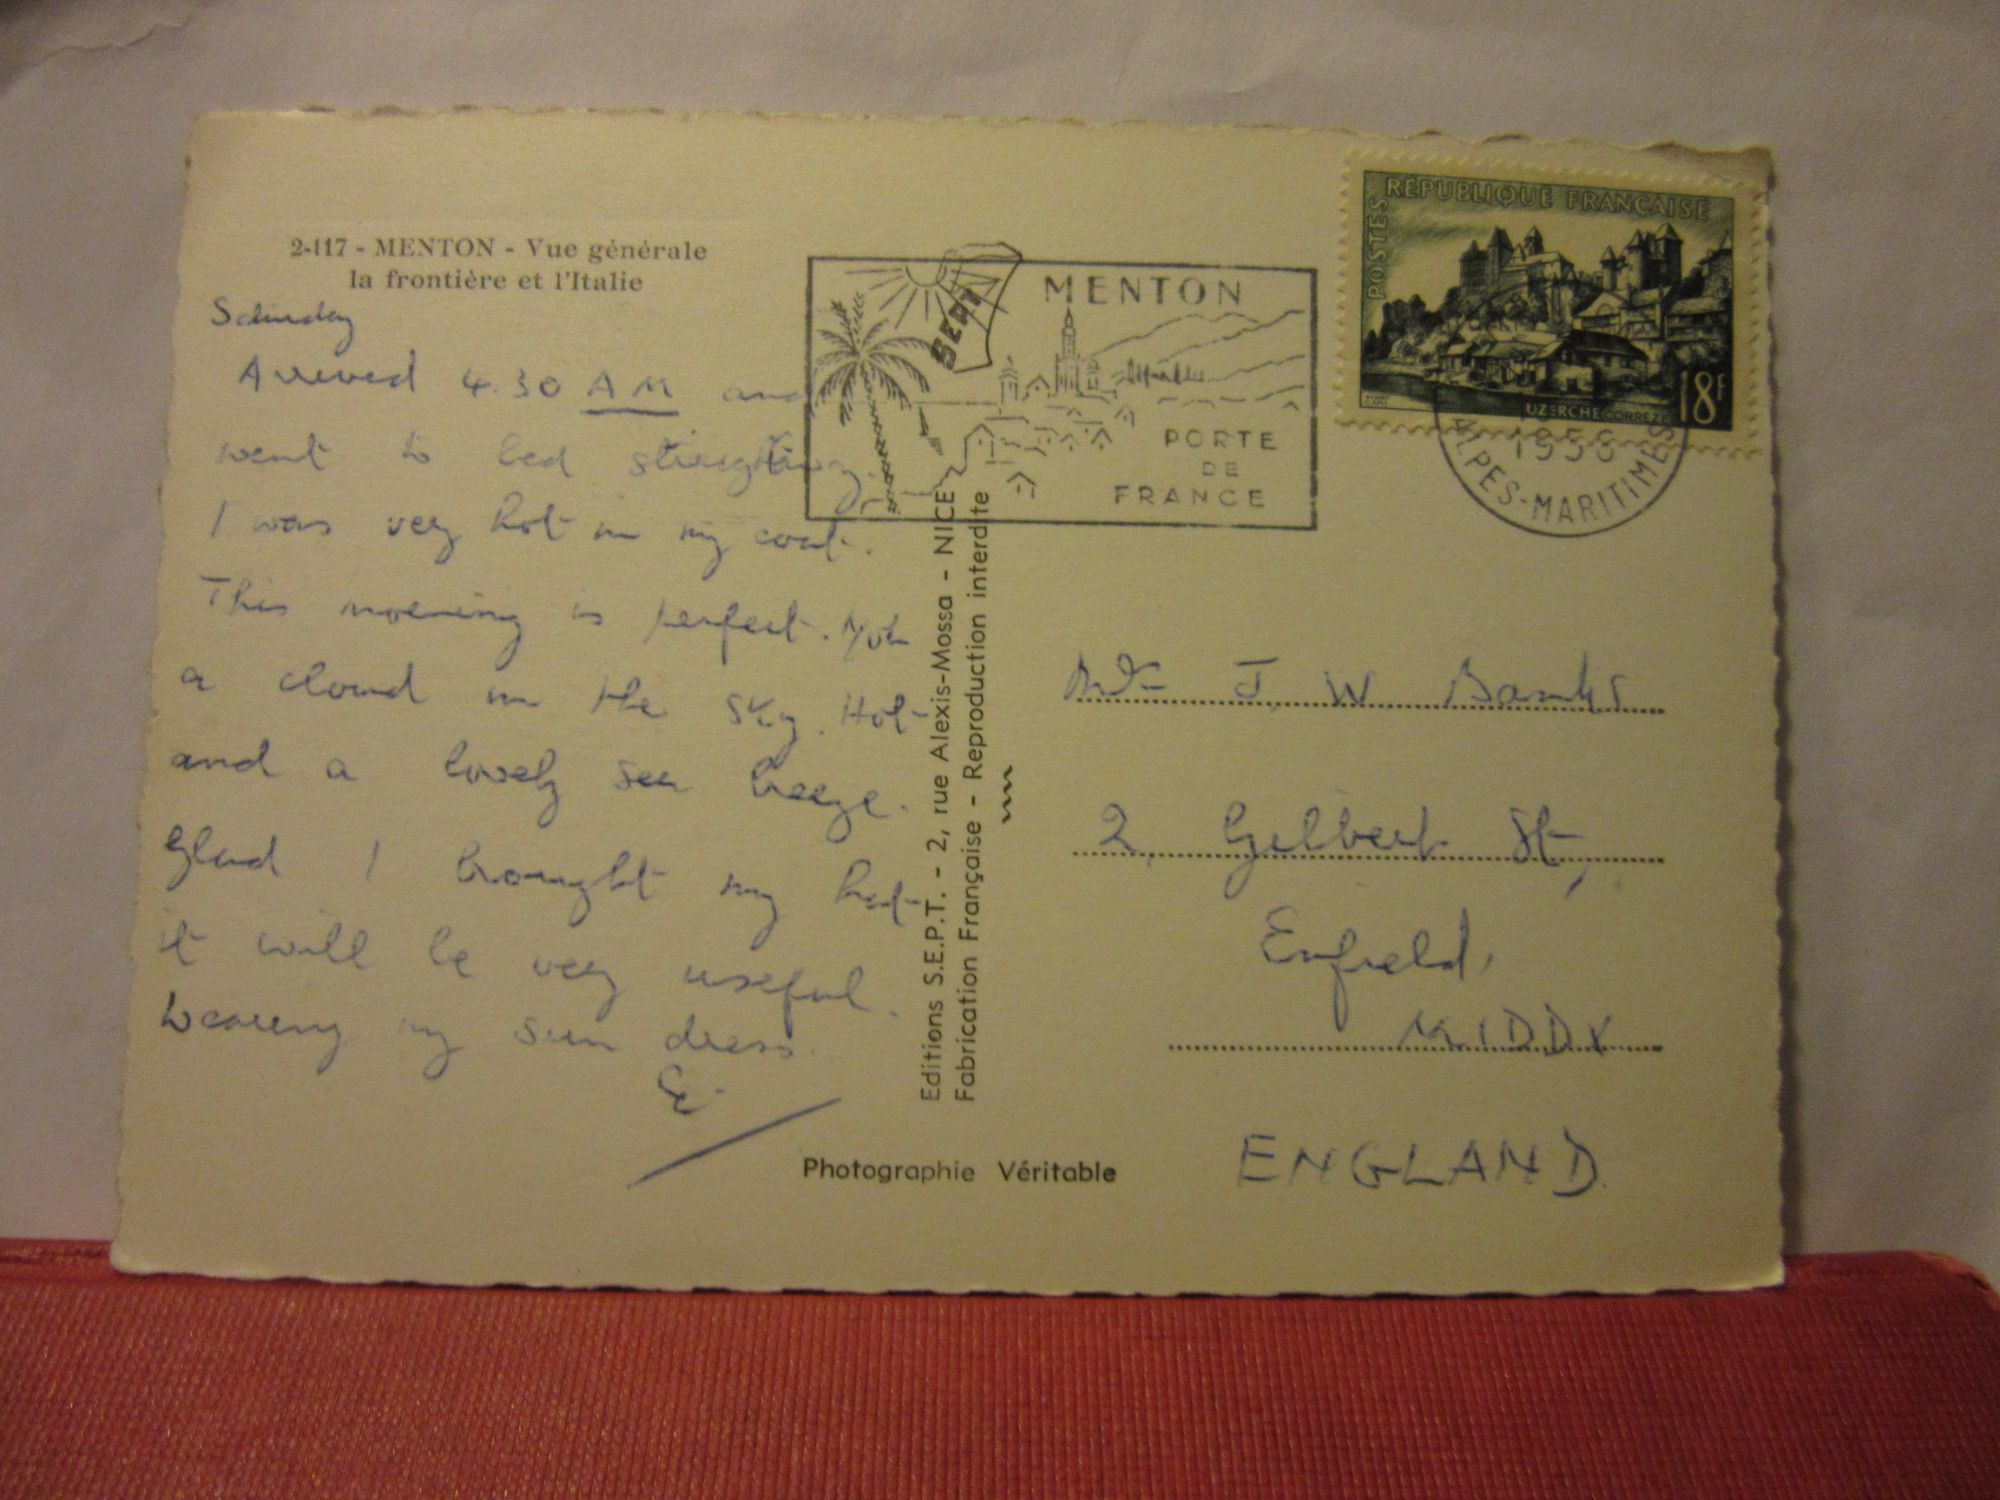 2-117 - MENTON - Vue générale
la frontière et l'Italie
Saturday
Arrived 4.30 AM and
went to bed straightaway.
I was very hot in my coat.
This morning is perfect. Not
a cloud in the sky. Hot
and a lovely sea breeze.
Glad I brought my hat
it will be very useful.
Wearing my sun dress.
MENTON
PORTE
DE
FRANCE
SEPT
POSTES RÉPUBLIQUE FRANÇAISE
UZERCHE CORRÈZE
18F
1958
ALPES-MARITIMES
Editions S.E.P.T. - 2, rue Alexis-Mossa - NICE
Fabrication Française - Reproduction interdite
Photographie Véritable
J. W. Banks
2, Gilbert St,
Enfield,
MIDDX
ENGLAND